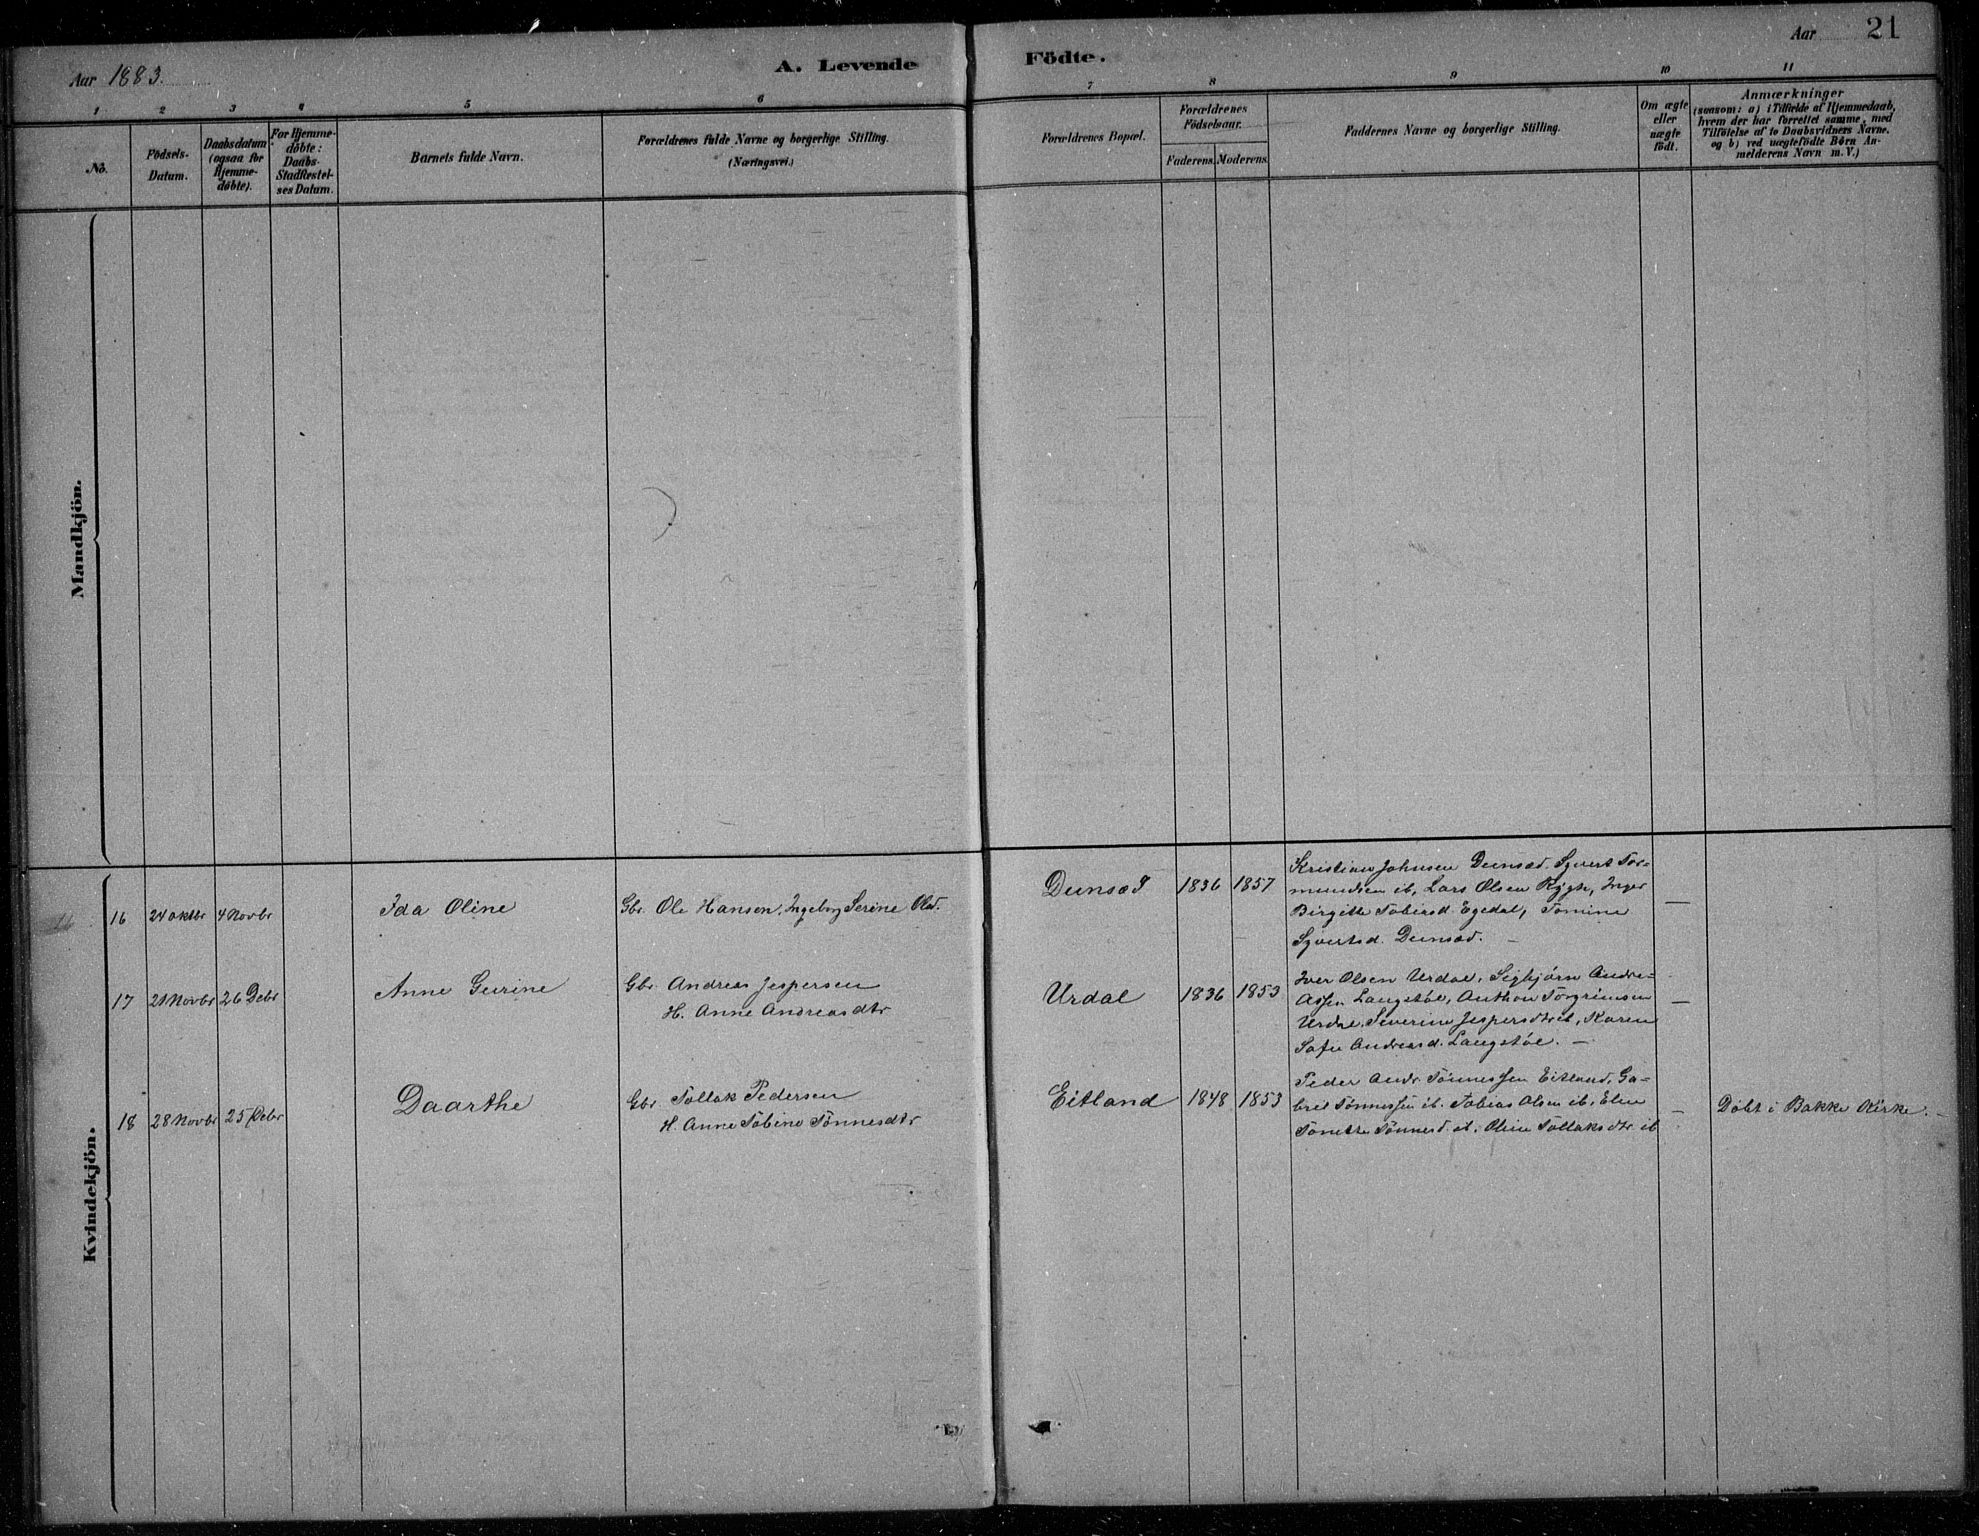 Aar 1883.
A. Levende
Födte.
Aar
21
1 2 3 4 5 6 7 8 9 10 11
No.
Födsels-
Datum.
Daabsdatum
(ogsaa for
Hjemme-
döbte).
For Hjemme-
döbte:
Daabs-
Stadfæstel-
ses Datum.
Barnets fulde Navn.
Forældrenes fulde Navne og borgerlige Stilling.
(Næringsvei.)
Forældrenes Bopæl.
Forældrenes
Födselsaar.
Faderens. Moderens.
Faddernes Navne og borgerlige Stilling.
Om ægte
eller
uægte
födt.
Anmærkninger
(saasom: a) i Tilfælde af Hjemmedaab,
hvem der har forrettet samme, med
Tilföielse af to Daabsvidners Navne.
og b) ved uægtefödte Börn An-
melderens Navn m. V.)
Mandkjön.
Kvindekjön.
16 24 oktbr 4 Novbr Ida Oline Gbr. Ole Hansen, Ingeborg Serine Olsd. Dunsæd 1836 1857
Kristian Johnsen Dunsæd. Syvert Tor-
mundsen ib, Lars Olsen Rygh, Inger
Birgitte Tobiasd. Egedal, Tomine
Syvertsd. Dunsæd. —
—
17 21 Novbr 26 Debr Anne Gurine Gbr. Andreas Jespersen
H. Anne Andreasdtr
Urdal 1836 1853
Iver Olsen Urdal, Sigbjörn Andre-
assen Langstöl, Anthon Torgrimsen
Urdal, Severine Jespersdtr ib, Karen
Sofie Andreasd. Langstöl. —
—
18 28 Novbr 25 Debr Daarthe Gbr Tollak Pedersen
H. Anne Tobine Tönnesdtr
Eitland 1848 1853
Peder Andr. Tönnessen Eitland, Ga-
briel Tönnessen ib. Tobias Olsen ib, Elen
Tonette Tönnesd. ib. Oline Tollaksdtr ib
—
Döbt i Bakke Kirke. —